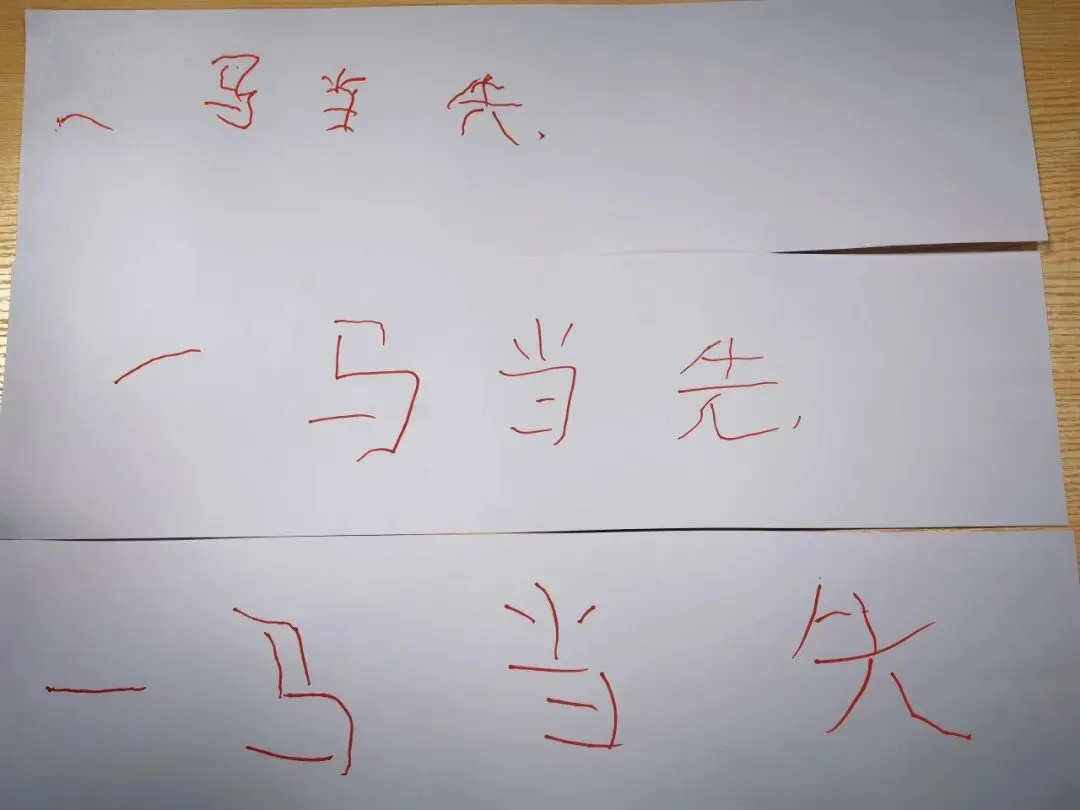 一马当先.
一马当先.
一马当先